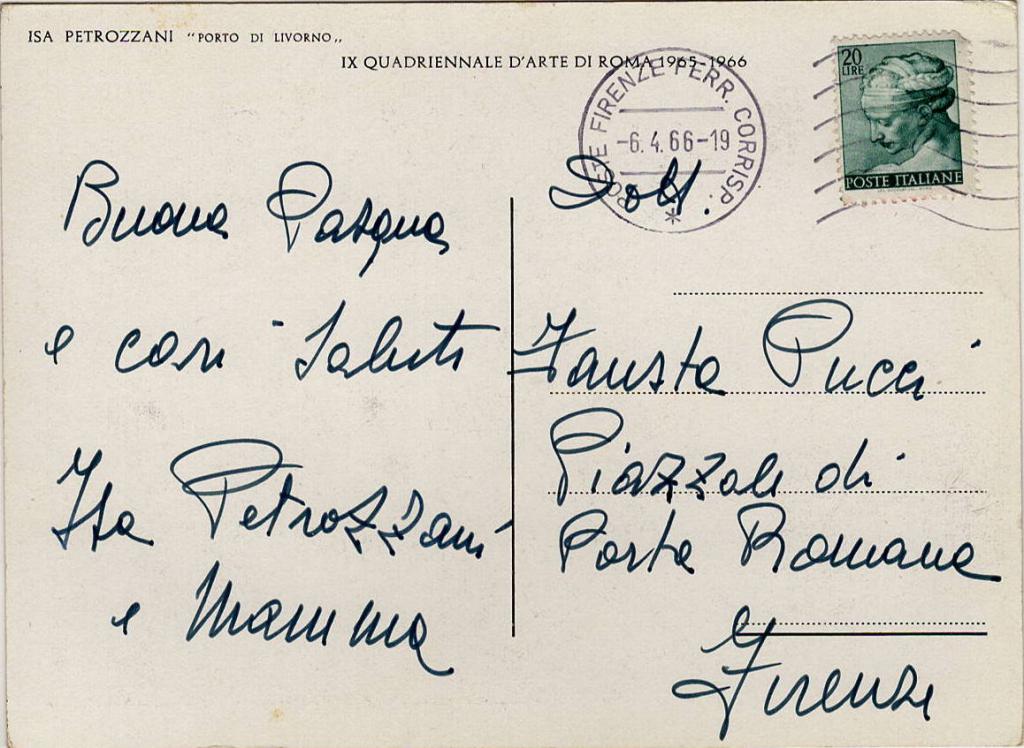 ISA PETROZZANI "PORTO DI LIVORNO„
IX QUADRIENNALE D'ARTE DI ROMA 1965-1966
POSTE FIRENZE FERR. CORRISP.
-6.4.66-19
*
20
LIRE
POSTE ITALIANE
Buona Pasqua
e cari saluti
Isa Petrozzani
e Mamma
Dott.
Fausta Pucci
Piazzale di
Porta Romana
Firenze